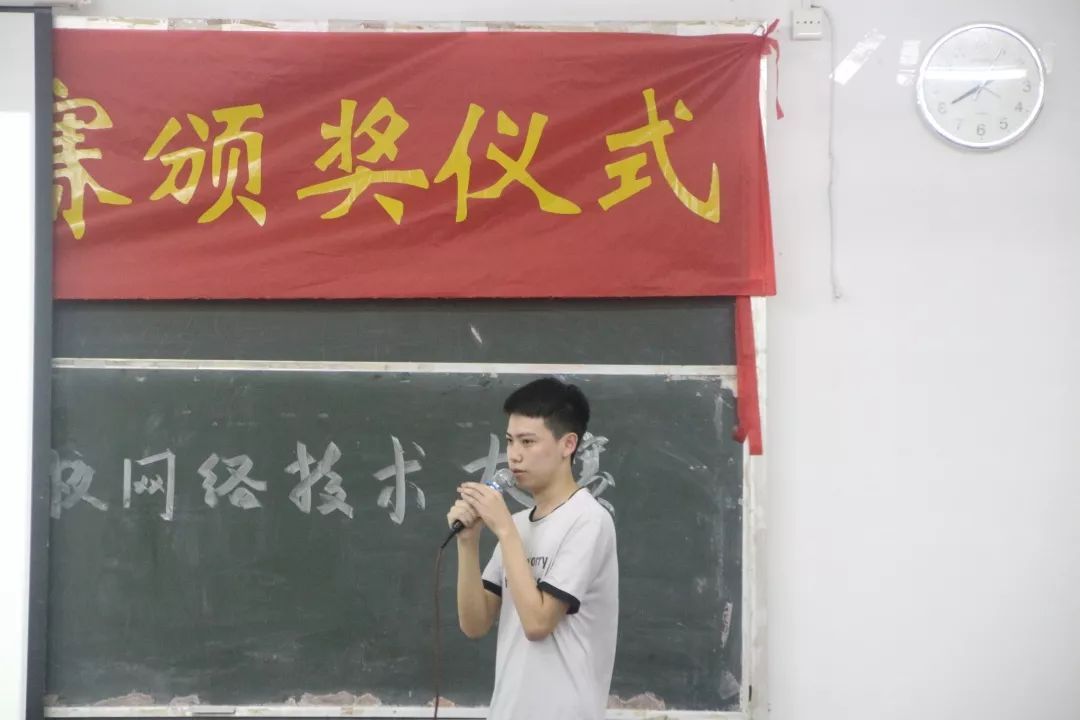 赛颁奖仪式
网络技术大赛
orry
3
4
5
6
7
8